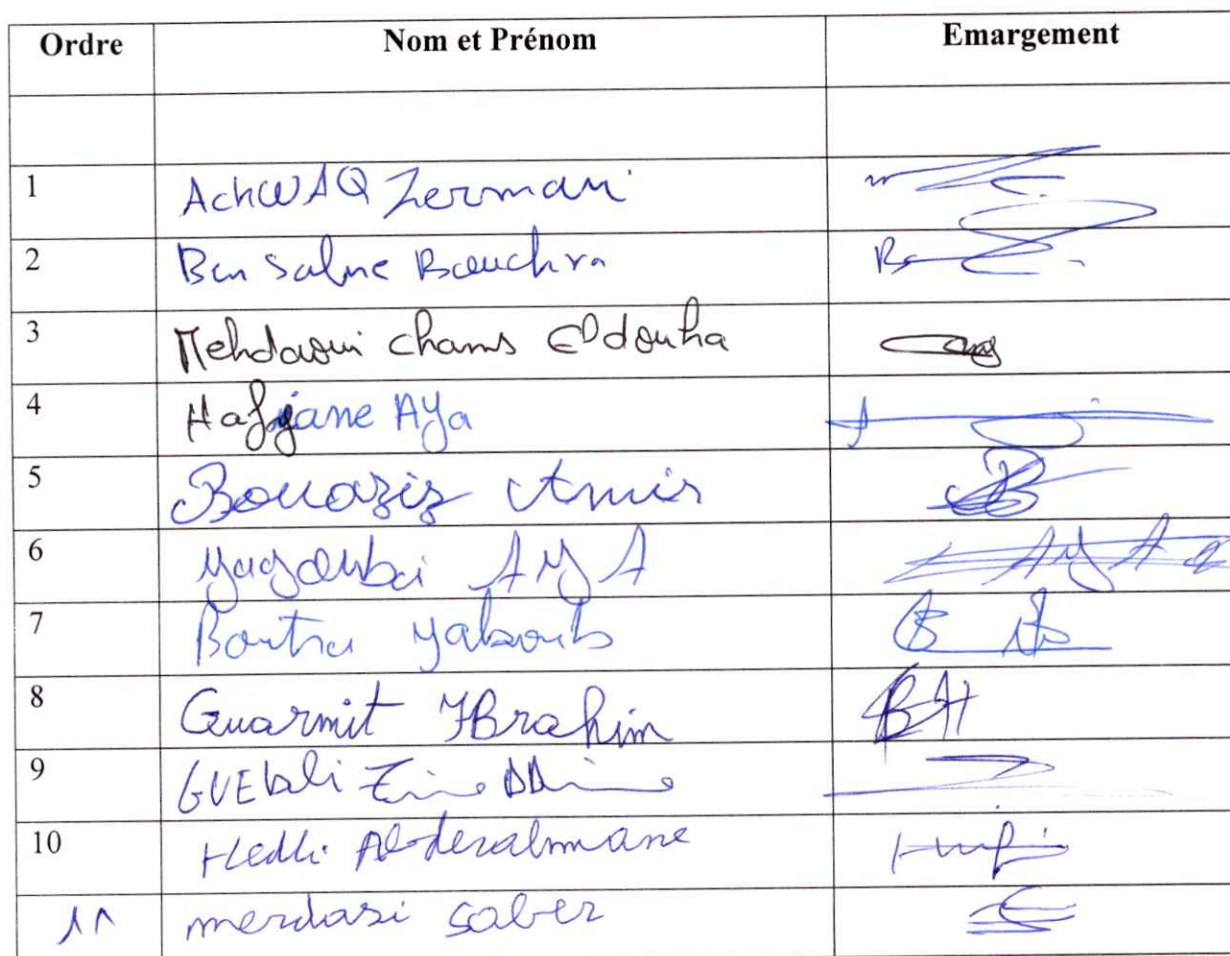 Ordre Nom et Prénom Emargement
1 AchWAQ Zermani
2 Ben Salme Bouchra
3 Mehdaoui chams Eldouha
4 Hafjane AYa
5 Bouaziz Amir
6 Yagoubi AYA AYA
7 Boutra Yakoub
8 Guarmit IBrahim BH
9 GUEbli Zine DDine
10 Hedli Abderahmane
11 merdasi saber